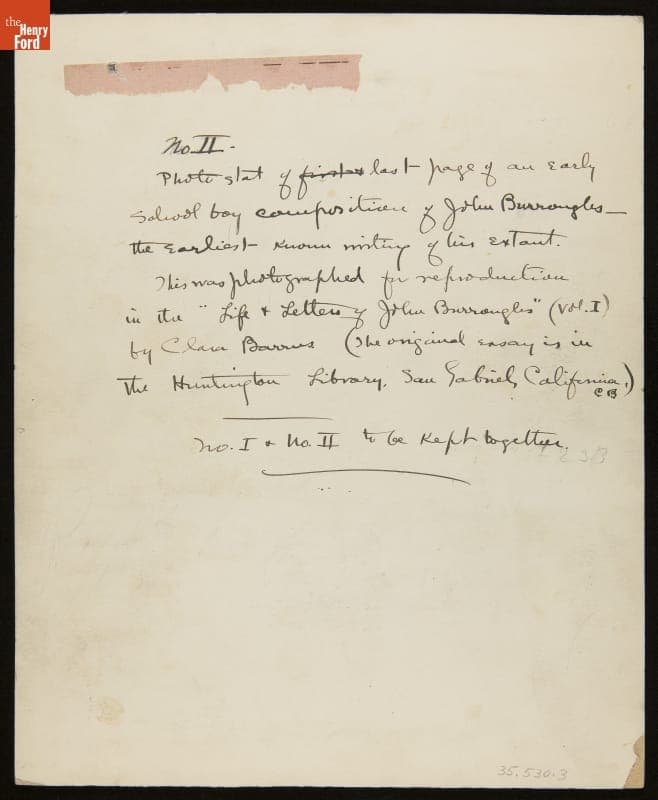 the
Henry
Ford
No. II.
Photostat of first & last page of an early
School boy composition of John Burroughs—
the earliest known writing of his extant.
This was photographed for reproduction
in the "Life & Letters of John Burroughs" (Vol. I)
by Clara Barrus (The original essay is in
the Huntington Library, San Gabriel, California.)
CB
No. I & No. II to be kept together.
35.530.3